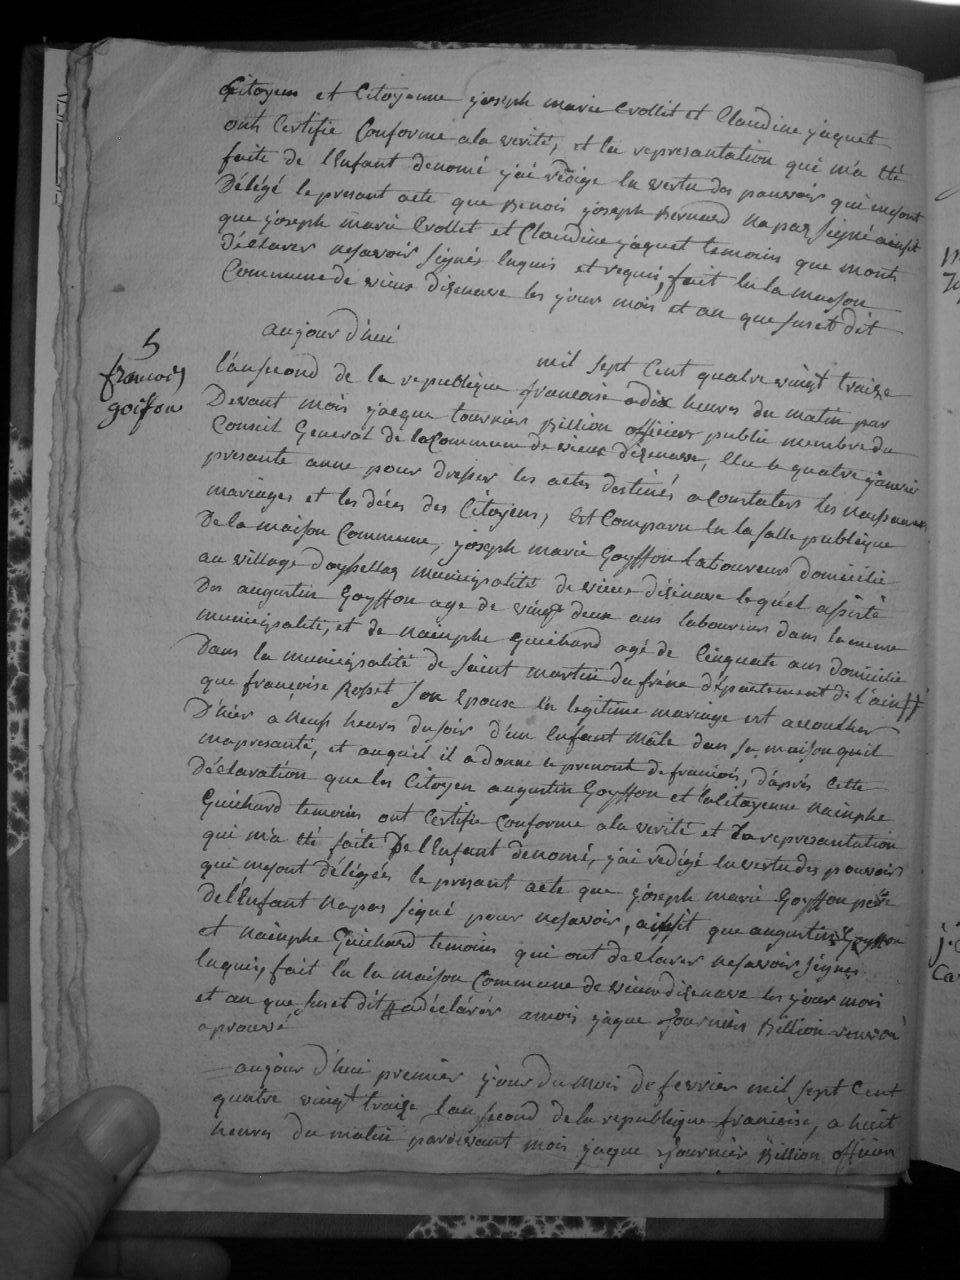 Citoyens et Citoyenne joseph marie Evollet et Claudine jaquet
onts Certifie Conforme ala verité, et la represantation qui m'a tté
faite de l'Enfant denomé j'ai redige En vertu des pouvoir qui mesont
Délégé le presant acte que Benois joseph Bernard na pas signé ainssit
que joseph marie Evollet et Claudine jaquet temoins que m'onts
déclarer nesavoir signés Enquis et requis, fait En la maison
Commune de vieux disenave les jours mois et an que susset dit
aujour d'hui
mil sept Cent quatre vingt traize
5
francois
goiffon
l'an second de la republique francoise a dix heures du matin par
Devant mois jacque tournier Billion officiers public membre du
Conseil General de la Commune de vieux disenave, Elu le quatre janvier
presante anne pour dresser les actes destinés a Constaters les naissances
mariages et les décés des Citoyens, est Comparu En la salle publique
De la maison Commune, joseph marie Goyffon laboureurs domicilié
au village municipalité de vieux disenave lequel assisté
Des augustin Goyffon age de vingt deux ans laboureurs dans la meme
municipalité, et de nainphe Guichard agé de Cinquate ans domicilie
Dans la municipalité de saint martin du frêne département de l'ain #
que françoise Rosset son Epouse En legitime mariage est accoucher
D'hier a neuf heures du soir d'un Enfant mâle dans sa maison quil
mapresanté, et auquel il a donne le prenont de francois, d'après Cette
Déclaration que les Citoyen augustin Goyffon et la Citoyenne nainphe
Guichard temoins ont Certifie Conforme ala verité et la represantation
qui m'a tté faite De l'Enfant denomé, j'ai redigé En vertu des pouvoirs
qui mesont délégées le presant acte que joseph marie Goyffon père
de l'Enfant napas signé pour nesavoir, ainssit que augustin Goyffon
et nainphe Guichard temoins qui ont declarer nesavoir signes
Enquis, fait En la maison Commune de vieux disenave les jour mois
et an que susset dit # a déclarér amois jaque tournier Billion
aprouvé
aujour d'hui premier jour du mois de fevrier mil sept Cent
quatre vingt traize l'an second de la republique francoise, a huit
heures du matin pardevant mois jaque tournier Billion officier